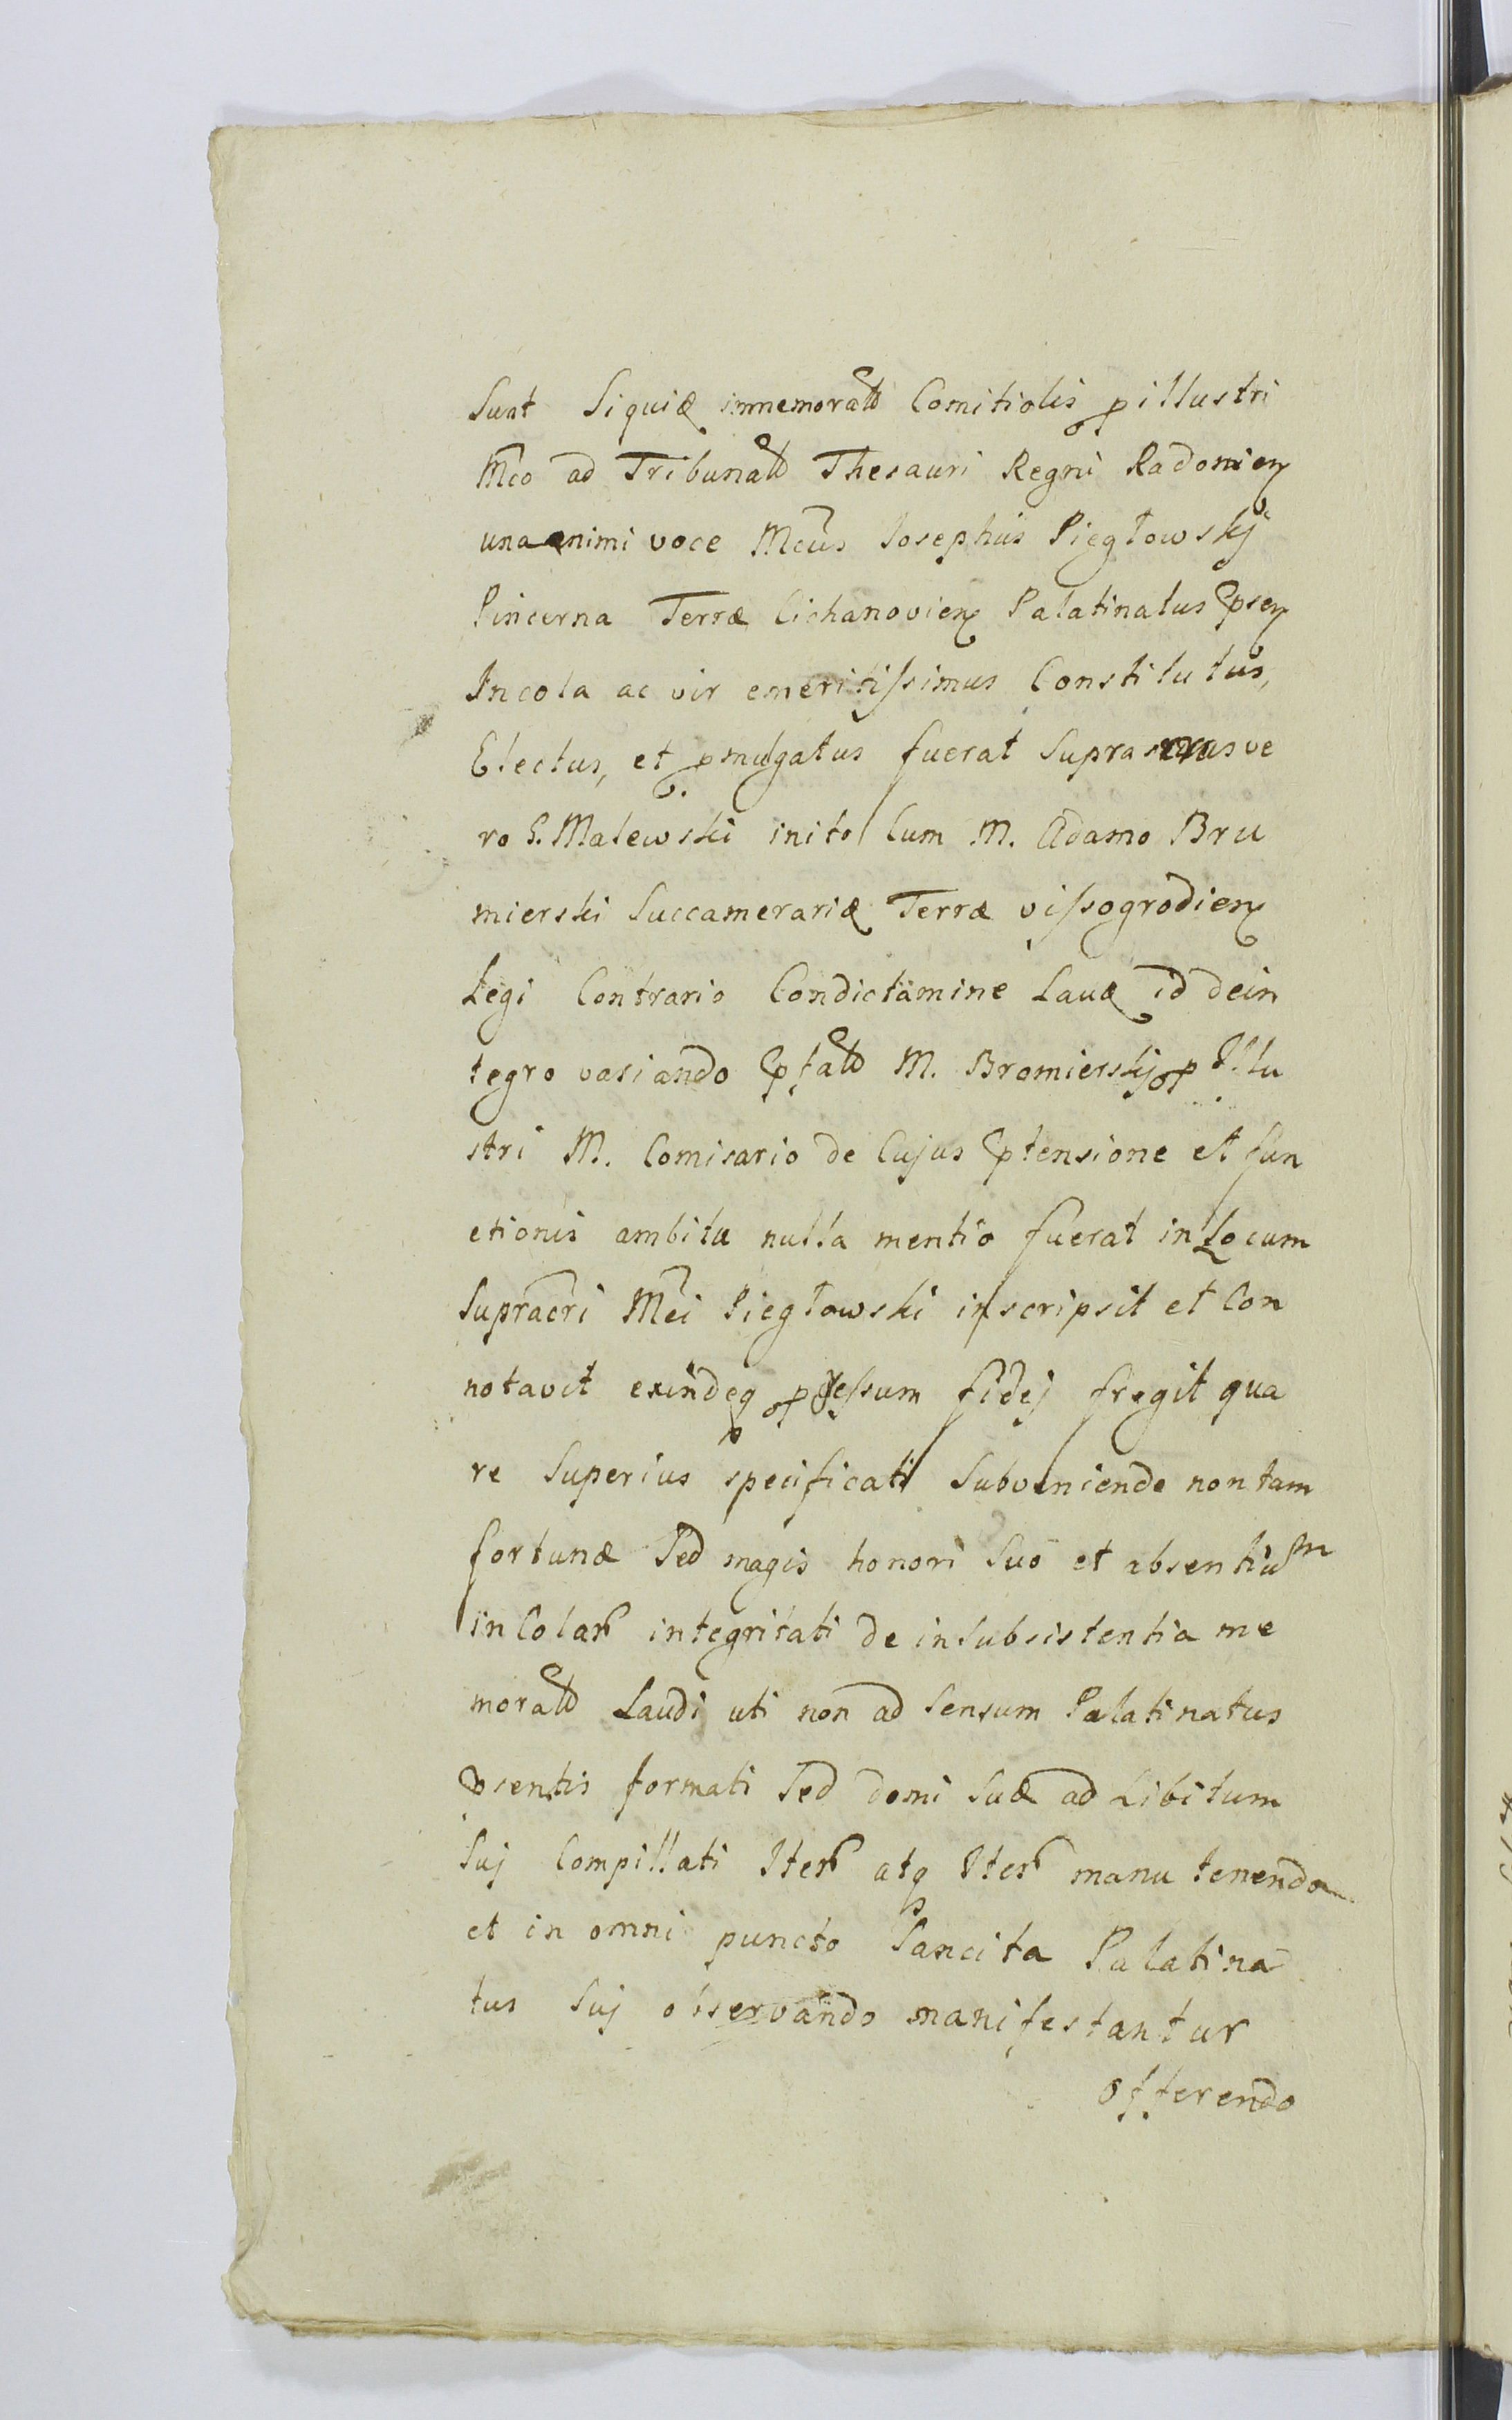 Sunt Siquiđ immemoratt Comitiolis p illustri
Mco ad Tribunatt Thesauri Regni Radomien
unaanimi voce Mcus Iosephus Piegłowskj
Pincerna Terræ Cichanovien Palatinatus psen
Incola ac vir emeritissimus Constitutus,
Electus, et pmulgatus fuerat Supra ve
ro G. Malewski inito Cum M. Adamo Bru
mierski Succamerariđ Terræ vissogrodien
Legi Contrario Condictamine Lauđ id dein
tegro variando ptatt M. Bromierskj p Illu
stri M. Comisario de Cujus ptensione et fun
ctionis ambitu nulla mentio fuerat in Locum
Supracri Mci Piegłowski inscripsit et Con
notavit exindeq pressum fidej fregit qua
re Superius specificati Subveniendo non tam
fortunæ Sed magis honori Suo et absentium
inColar integritati de insubsistentia me
moratt Laudi uti non ad Sensum Palatinatus
psentis formati Sed domi Suæ ad Libitum
Suj Compillati Iter atq Iter manu tenendo
et in omni puncto Sancita Palatina
tus Suj observando manifestantur
offerendo